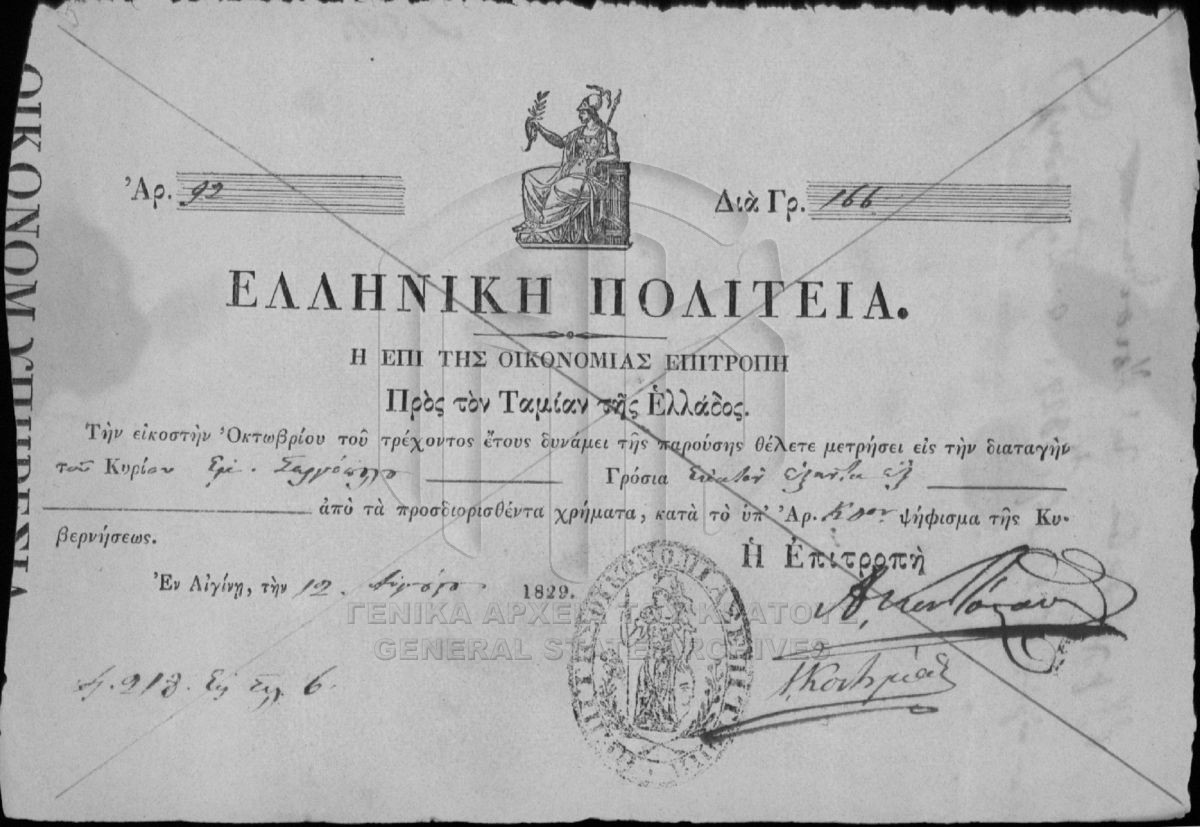 ΟΙΚΟΝΟΜ ΥΠΗΡΕΣΙΑ
Ἀρ. 92
Διὰ Γρ. 166
ΕΛΛΗΝΙΚΗ ΠΟΛΙΤΕΙΑ.
Η ΕΠΙ ΤΗΣ ΟΙΚΟΝΟΜΙΑΣ ΕΠΙΤΡΟΠΗ
Πρὸς τὸν Ταμίαν τῆς Ἑλλάδος.
Τὴν εἰκοστὴν Ὀκτωβρίου τοῦ τρέχοντος ἔτους δυνάμει τῆς παρούσης θέλετε μετρήσει εἰς τὴν διαταγὴν
τοῦ Κυρίου Γρόσια ἑκατὸν ἑξήντα ἓξ
ἀπὸ τὰ προσδιορισθέντα χρήματα, κατὰ τὸ ὑπ' Ἀρ. ψήφισμα τῆς Κυ-
βερνήσεως.
Ἡ Ἐπιτροπὴ
Ἐν Αἰγίνῃ, τὴν 12 1829.
ΓΕΝΙΚΑ ΑΡΧΕΙΑ ΤΟΥ ΚΡΑΤΟΥΣ
GENERAL STATE ARCHIVES